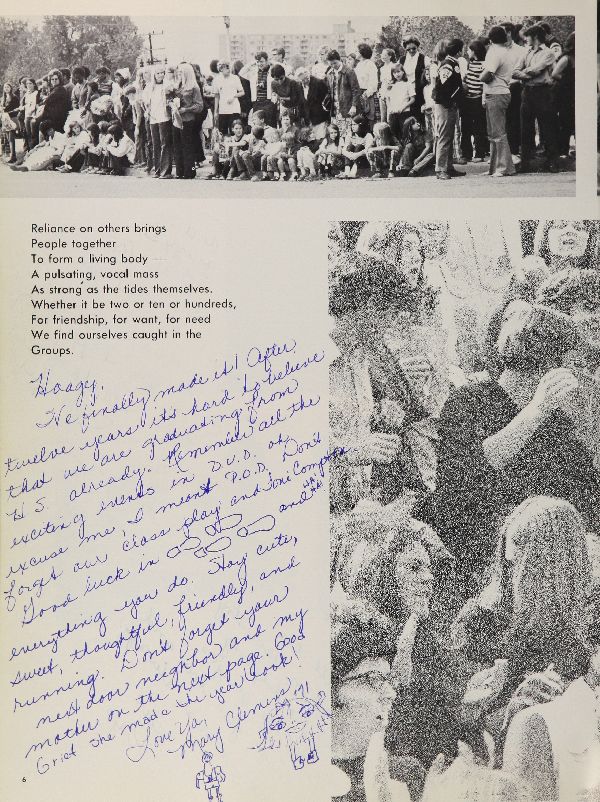 Reliance on others brings
People together
To form a living body
A pulsating, vocal mass
As strong as the tides themselves.
Whether it be two or ten or hundreds,
For friendship, for want, for need
We find ourselves caught in the
Groups.
Hoagy,
We finally made it! After
twelve years its hard to believe
that we are graduating from
H.S. already. Remember all the
exciting events in D.U.D. oh,
excuse me, I meant P.O.D. Don't
forget our class play and
Good luck in and
everything you do. Stay cute,
sweet, thoughtful, friendly, and
running. Don't forget your
next door neighbor and my
mother on the next page. Good
Grief she made the year book!
Love Ya,
Mary Clemens
6